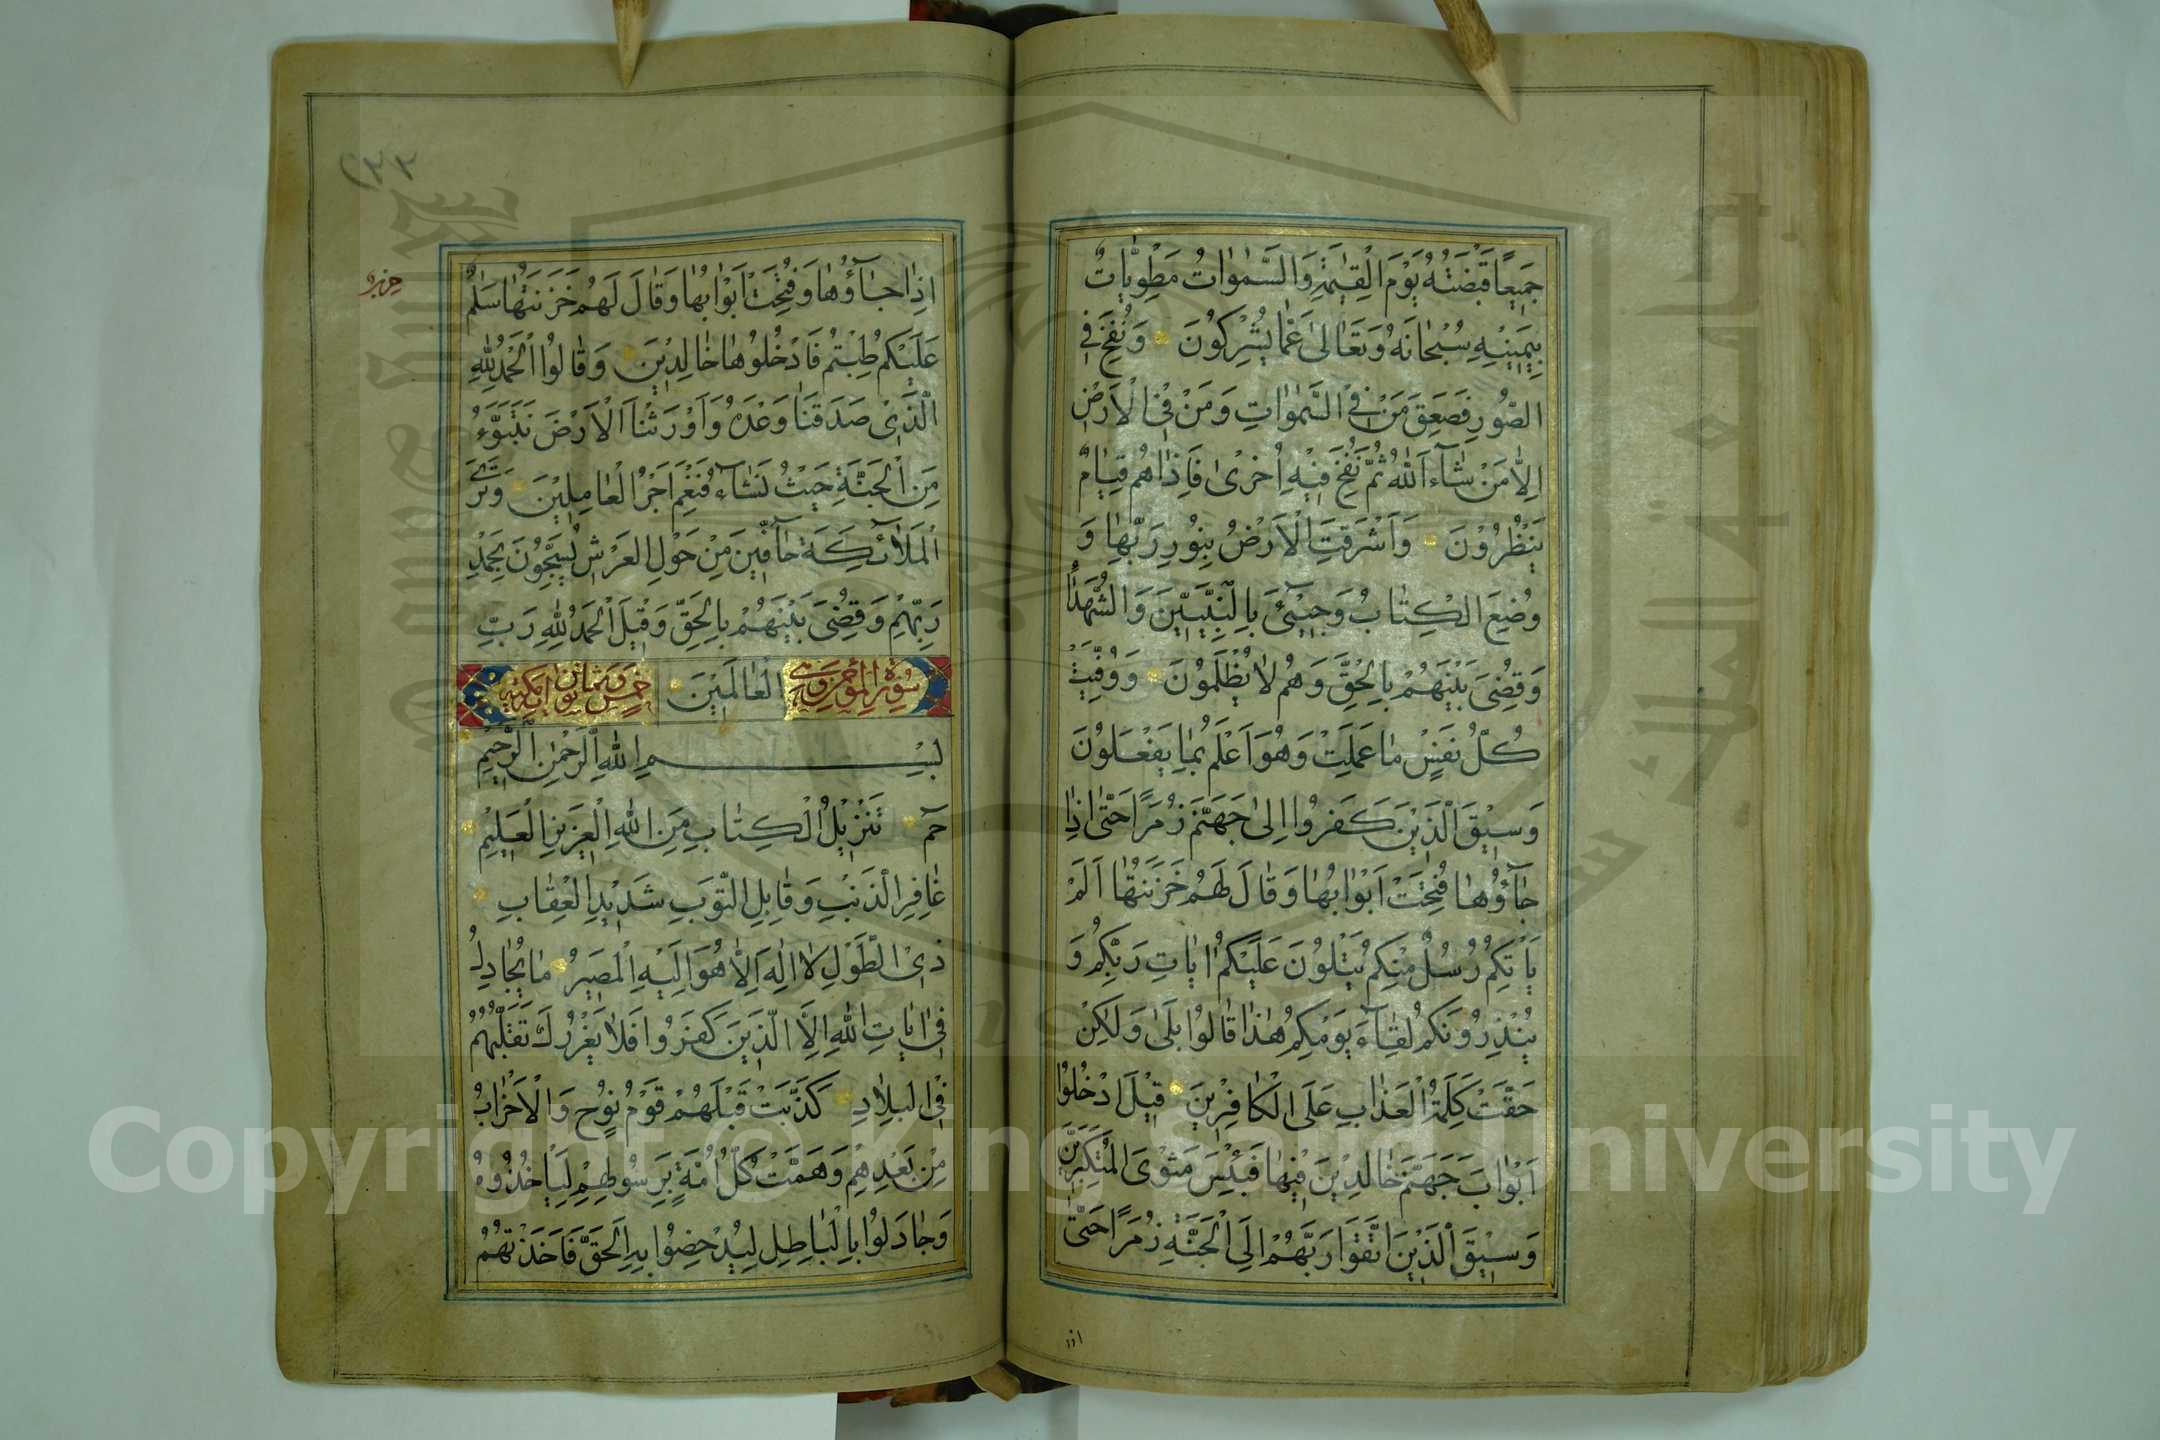 جَمِيعًا قَبْضَتُهُ يَوْمَ الْقِيٰمَةِ وَالسَّمٰوَاتُ مَطْوِيَّاتٌ
بِيَمِينِهِ سُبْحَانَهُ وَتَعَالٰى عَمَّا يُشْرِكُونَ وَنُفِخَ فِي
الصُّورِ فَصَعِقَ مَنْ فِي السَّمٰوَاتِ وَمَنْ فِي الْاَرْضِ
اِلَّا مَنْ شَآءَ اللّٰهُ ثُمَّ نُفِخَ فِيْهِ اُخْرٰى فَاِذَا هُمْ قِيَامٌ
يَنْظُرُوْنَ وَاَشْرَقَتِ الْاَرْضُ بِنُورِ رَبِّهَا وَ
وُضِعَ الْكِتَابُ وَجِيْٓئَ بِالنَّبِيّٖيْنَ وَالشُّهَدَاءِ
وَقُضِيَ بَيْنَهُمْ بِالْحَقِّ وَهُمْ لَا يُظْلَمُوْنَ وَوُفِّيَتْ
كُلُّ نَفْسٍ مَا عَمِلَتْ وَهُوَ اَعْلَمُ بِمَا يَفْعَلُوْنَ
وَسِيْقَ الَّذِيْنَ كَفَرُوا اِلٰى جَهَنَّمَ زُمَرًا حَتّٰى اِذَا
جَآؤُهَا فُتِحَتْ اَبْوَابُهَا وَقَالَ لَهُمْ خَزَنَتُهَا اَلَمْ
يَاْتِكُمْ رُسُلٌ مِنْكُمْ يَتْلُوْنَ عَلَيْكُمْ اٰيَاتِ رَبِّكُمْ وَ
يُنْذِرُوْنَكُمْ لِقَآءَ يَوْمِكُمْ هٰذَا قَالُوا بَلٰى وَلٰكِنْ
حَقَّتْ كَلِمَةُ الْعَذَابِ عَلَى الْكَافِرِيْنَ قِيْلَ ادْخُلُوْا
اَبْوَابَ جَهَنَّمَ خَالِدِيْنَ فِيْهَا فَبِئْسَ مَثْوَى الْمُتَكَبِّرِيْنَ
وَسِيْقَ الَّذِيْنَ اتَّقَوْا رَبَّهُمْ اِلَى الْجَنَّةِ زُمَرًا حَتّٰى
اِذَا جَآؤُهَا وَفُتِحَتْ اَبْوَابُهَا وَقَالَ لَهُمْ خَزَنَتُهَا سَلَامٌ
عَلَيْكُمْ طِبْتُمْ فَادْخُلُوْهَا خَالِدِيْنَ وَقَالُوا الْحَمْدُ لِلّٰهِ
الَّذِيْ صَدَقَنَا وَعْدَهُ وَاَوْرَثَنَا الْاَرْضَ نَتَبَوَّءُ
مِنَ الْجَنَّةِ حَيْثُ نَشَآءُ فَنِعْمَ اَجْرُ الْعَامِلِيْنَ وَتَرَى
الْمَلَآئِكَةَ حَآفِّيْنَ مِنْ حَوْلِ الْعَرْشِ يُسَبِّحُوْنَ بِحَمْدِ
رَبِّهِمْ وَقُضِيَ بَيْنَهُمْ بِالْحَقِّ وَقِيْلَ الْحَمْدُ لِلّٰهِ رَبِّ
سورة المؤمن وهي الْعَالَمِيْنَ خمس وثمانون اية مكية
بِسْمِ اللّٰهِ الرَّحْمٰنِ الرَّحِيْمِ
حٰمٓ تَنْزِيْلُ الْكِتَابِ مِنَ اللّٰهِ الْعَزِيْزِ الْعَلِيْمِ
غَافِرِ الذَّنْبِ وَقَابِلِ التَّوْبِ شَدِيْدِ الْعِقَابِ
ذِى الطَّوْلِ لَا اِلٰهَ اِلَّا هُوَ اِلَيْهِ الْمَصِيْرُ مَا يُجَادِلُ
فِيْ اٰيَاتِ اللّٰهِ اِلَّا الَّذِيْنَ كَفَرُوا فَلَا يَغْرُرْكَ تَقَلُّبُهُمْ
فِي الْبِلَادِ كَذَّبَتْ قَبْلَهُمْ قَوْمُ نُوْحٍ وَالْاَحْزَابُ
مِنْ بَعْدِهِمْ وَهَمَّتْ كُلُّ اُمَّةٍ بِرَسُوْلِهِمْ لِيَاْخُذُوْهُ
وَجَادَلُوْا بِالْبَاطِلِ لِيُدْحِضُوْا بِهِ الْحَقَّ فَاَخَذْتُهُمْ
حزب
Copyright © King Saud University